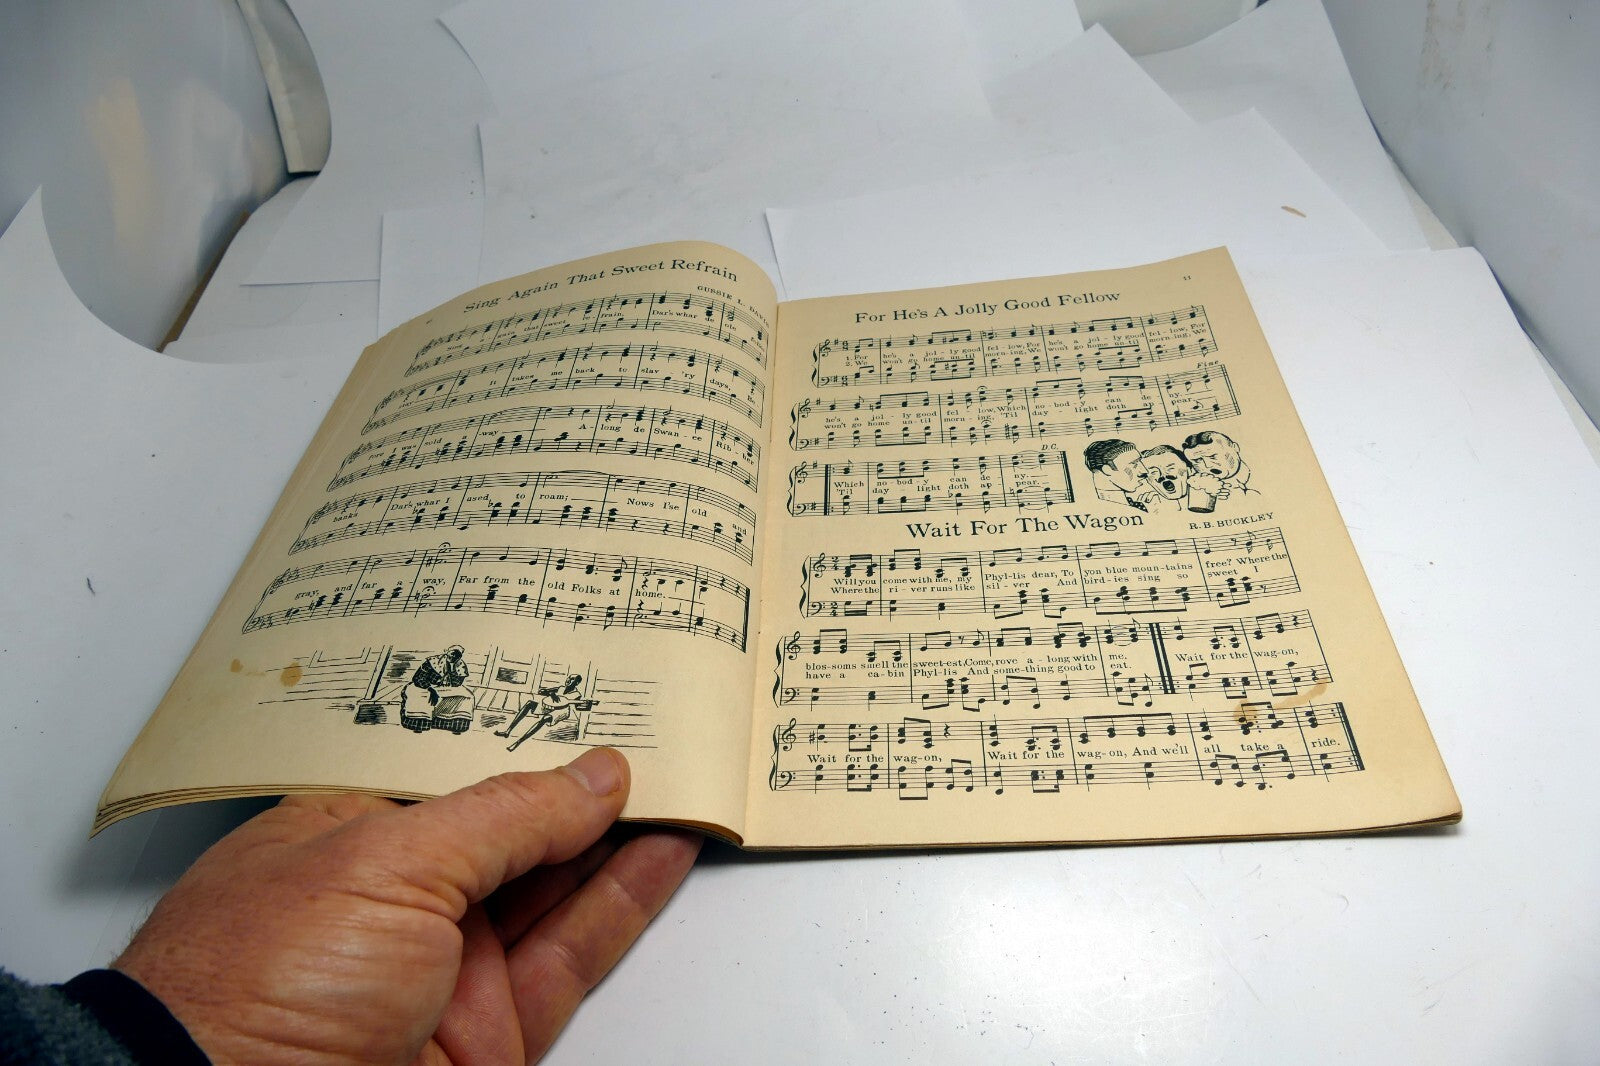 Sing Again That Sweet Refrain
GUSSIE L. DAVIS
Sing a - gain that sweet re - frain, Dar's whar de ole
It takes me back to slav - 'ry days, Be
fore I was sold a - way A - long de Swan - ee Rib - ber
banks Dar's whar I used to roam; Nows I'se old and
gray, and far a way, Far from the old Folks at home.
11
For He's A Jolly Good Fellow
1. For he's a jol - ly good fel - low, For he's a jol - ly good fel - low, For
2. We won't go home un - til morn - ing, We won't go home un - til morn - ing, We
Fine
he's a jol - ly good fel - low, Which no - bod - y can de ny.
won't go home un - til morn - ing, 'Til day - light doth ap pear.
D.C.
Which no - bod - y can de ny.
'Til day light doth ap pear.
Wait For The Wagon
R. B. BUCKLEY
Will you come with me, my Phyl - lis dear, To yon blue moun - tains free? Where the
Where the ri - ver runs like sil - ver And bird - ies sing so sweet I
blos - soms smell the sweet - est, Come, rove a - long with me. Wait for the wag - on,
have a ca - bin Phyl - lis And some - thing good to eat.
Wait for the wag - on, Wait for the wag - on, And we'll all take a ride.